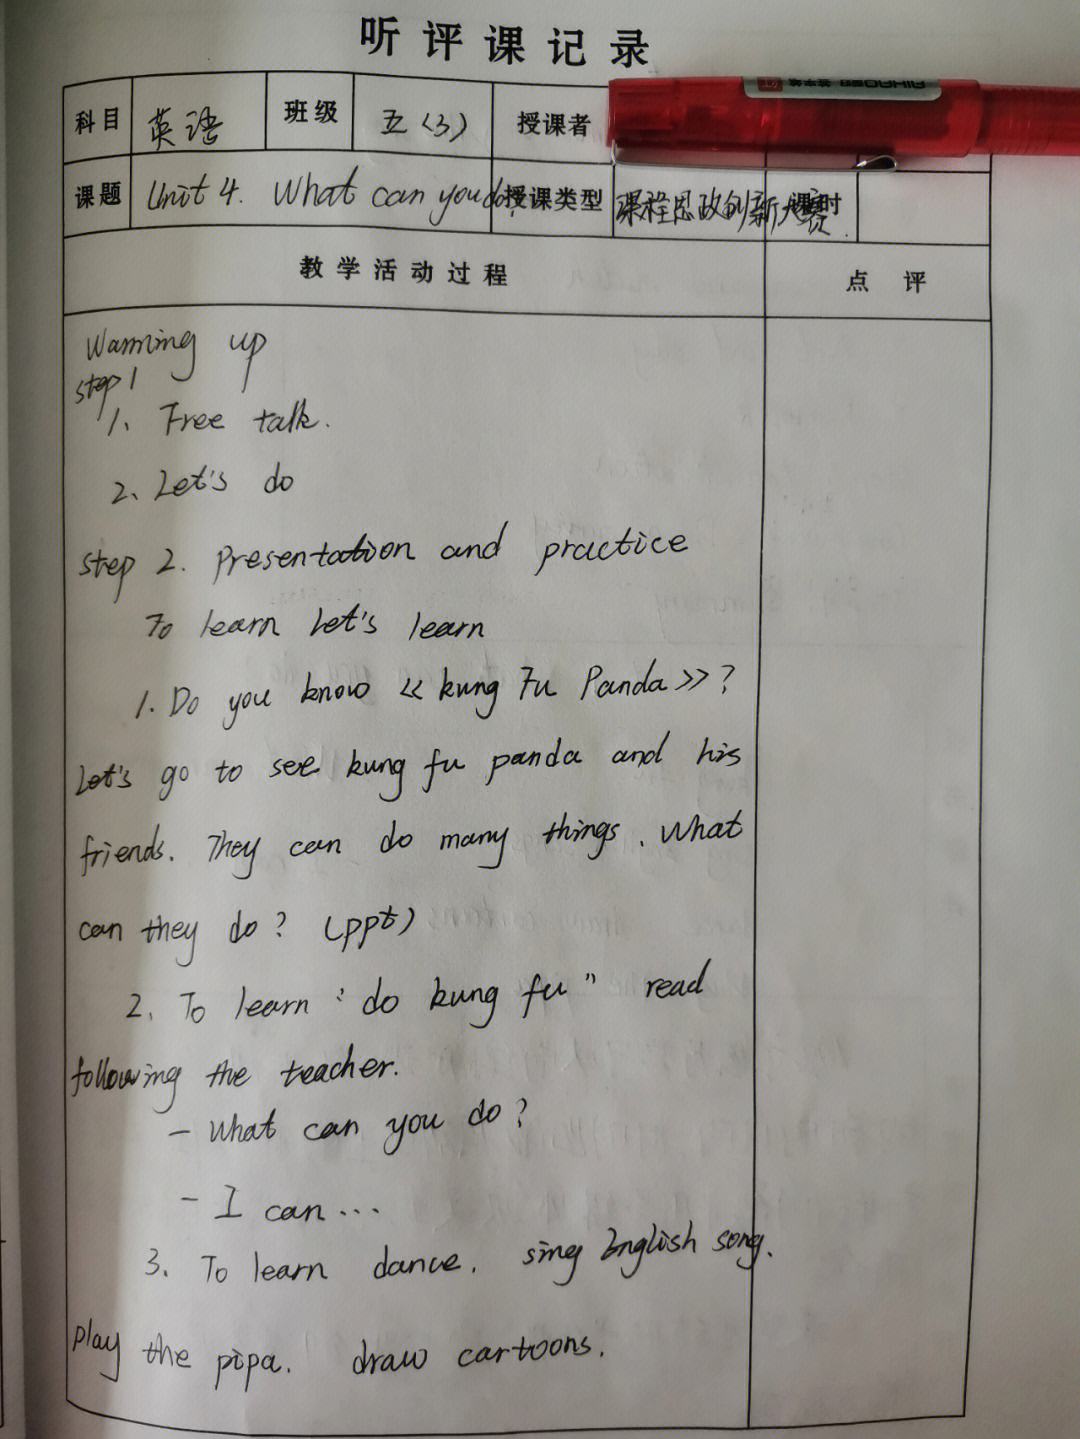 听评课记录
科目 英语 班级 五(3) 授课者
课题 Unit 4. What can you do? 授课类型 课程思政创新大赛. 课时
教学活动过程 点 评
Warming up
step 1
1、Free talk.
2、Let's do
step 2. Presentation and practice
To learn Let's learn
1. Do you know 《kung Fu Panda》?
Let's go to see kung fu panda and his
friends. They can do many things. What
can they do? (ppt)
2、To learn "do kung fu" read
following the teacher.
- What can you do?
- I can...
3、To learn dance. sing English song.
play the pipa. draw cartoons.